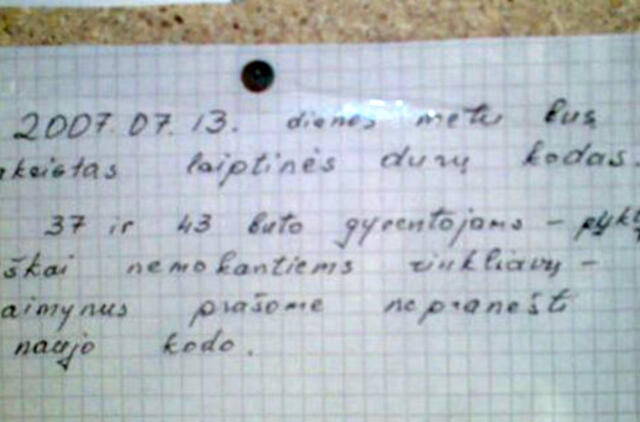 2007.07.13. dienos metu bus
akeistas laiptinės durų kodas.
37 ir 43 buto gyventojams - pykt
škai nemokantiems rinkliavų -
aimynus prašome nepranešti
naujo kodo.